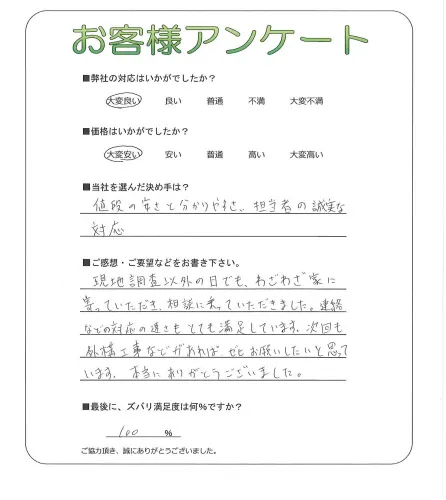 お客様アンケート
■弊社の対応はいかがでしたか?
大変良い 良い 普通 不満 大変不満
■価格はいかがでしたか?
大変安い 安い 普通 高い 大変高い
■当社を選んだ決め手は?
値段の安さと分かりやすさ、担当者の誠実な
対応
■ご感想・ご要望などをお書き下さい。
現地調査以外の日でも、わざわざ家に
寄っていただき、相談に乗っていただきました。連絡
などの対応の速さもとても満足しています。次回も
外構工事などがあれば ぜひお願いしたいと思って
います。本当にありがとうございました。
■最後に、ズバリ満足度は何%ですか?
100 %
ご協力頂き、誠にありがとうございました。